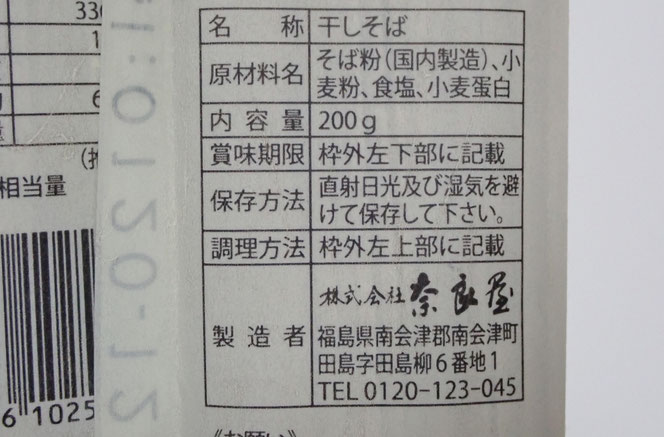 名称 干しそば
原材料名 そば粉(国内製造)、小
麦粉、食塩、小麦蛋白
内容量 200g
賞味期限 枠外左下部に記載
保存方法 直射日光及び湿気を避
けて保存して下さい。
調理方法 枠外左上部に記載
製造者 株式会社奈良屋
福島県南会津郡南会津町
田島字田島柳6番地1
TEL 0120-123-045
相当量
6 1025